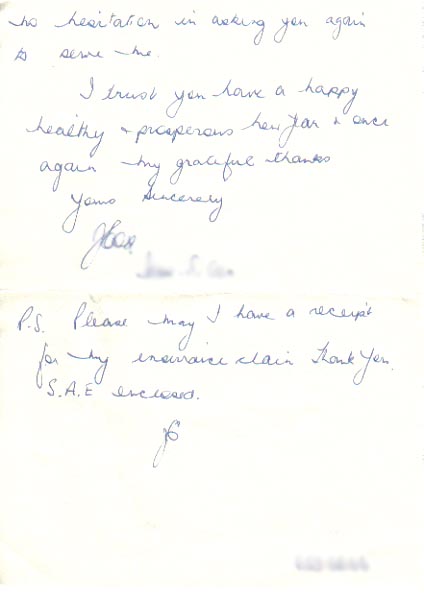 no hesitation in asking you again
to serve me.
I trust you have a happy
healthy & prosperous New Year & once
again my grateful thanks
Yours Sincerely
P.S. Please may I have a receipt
for my insurance claim Thank You.
S.A.E enclosed.